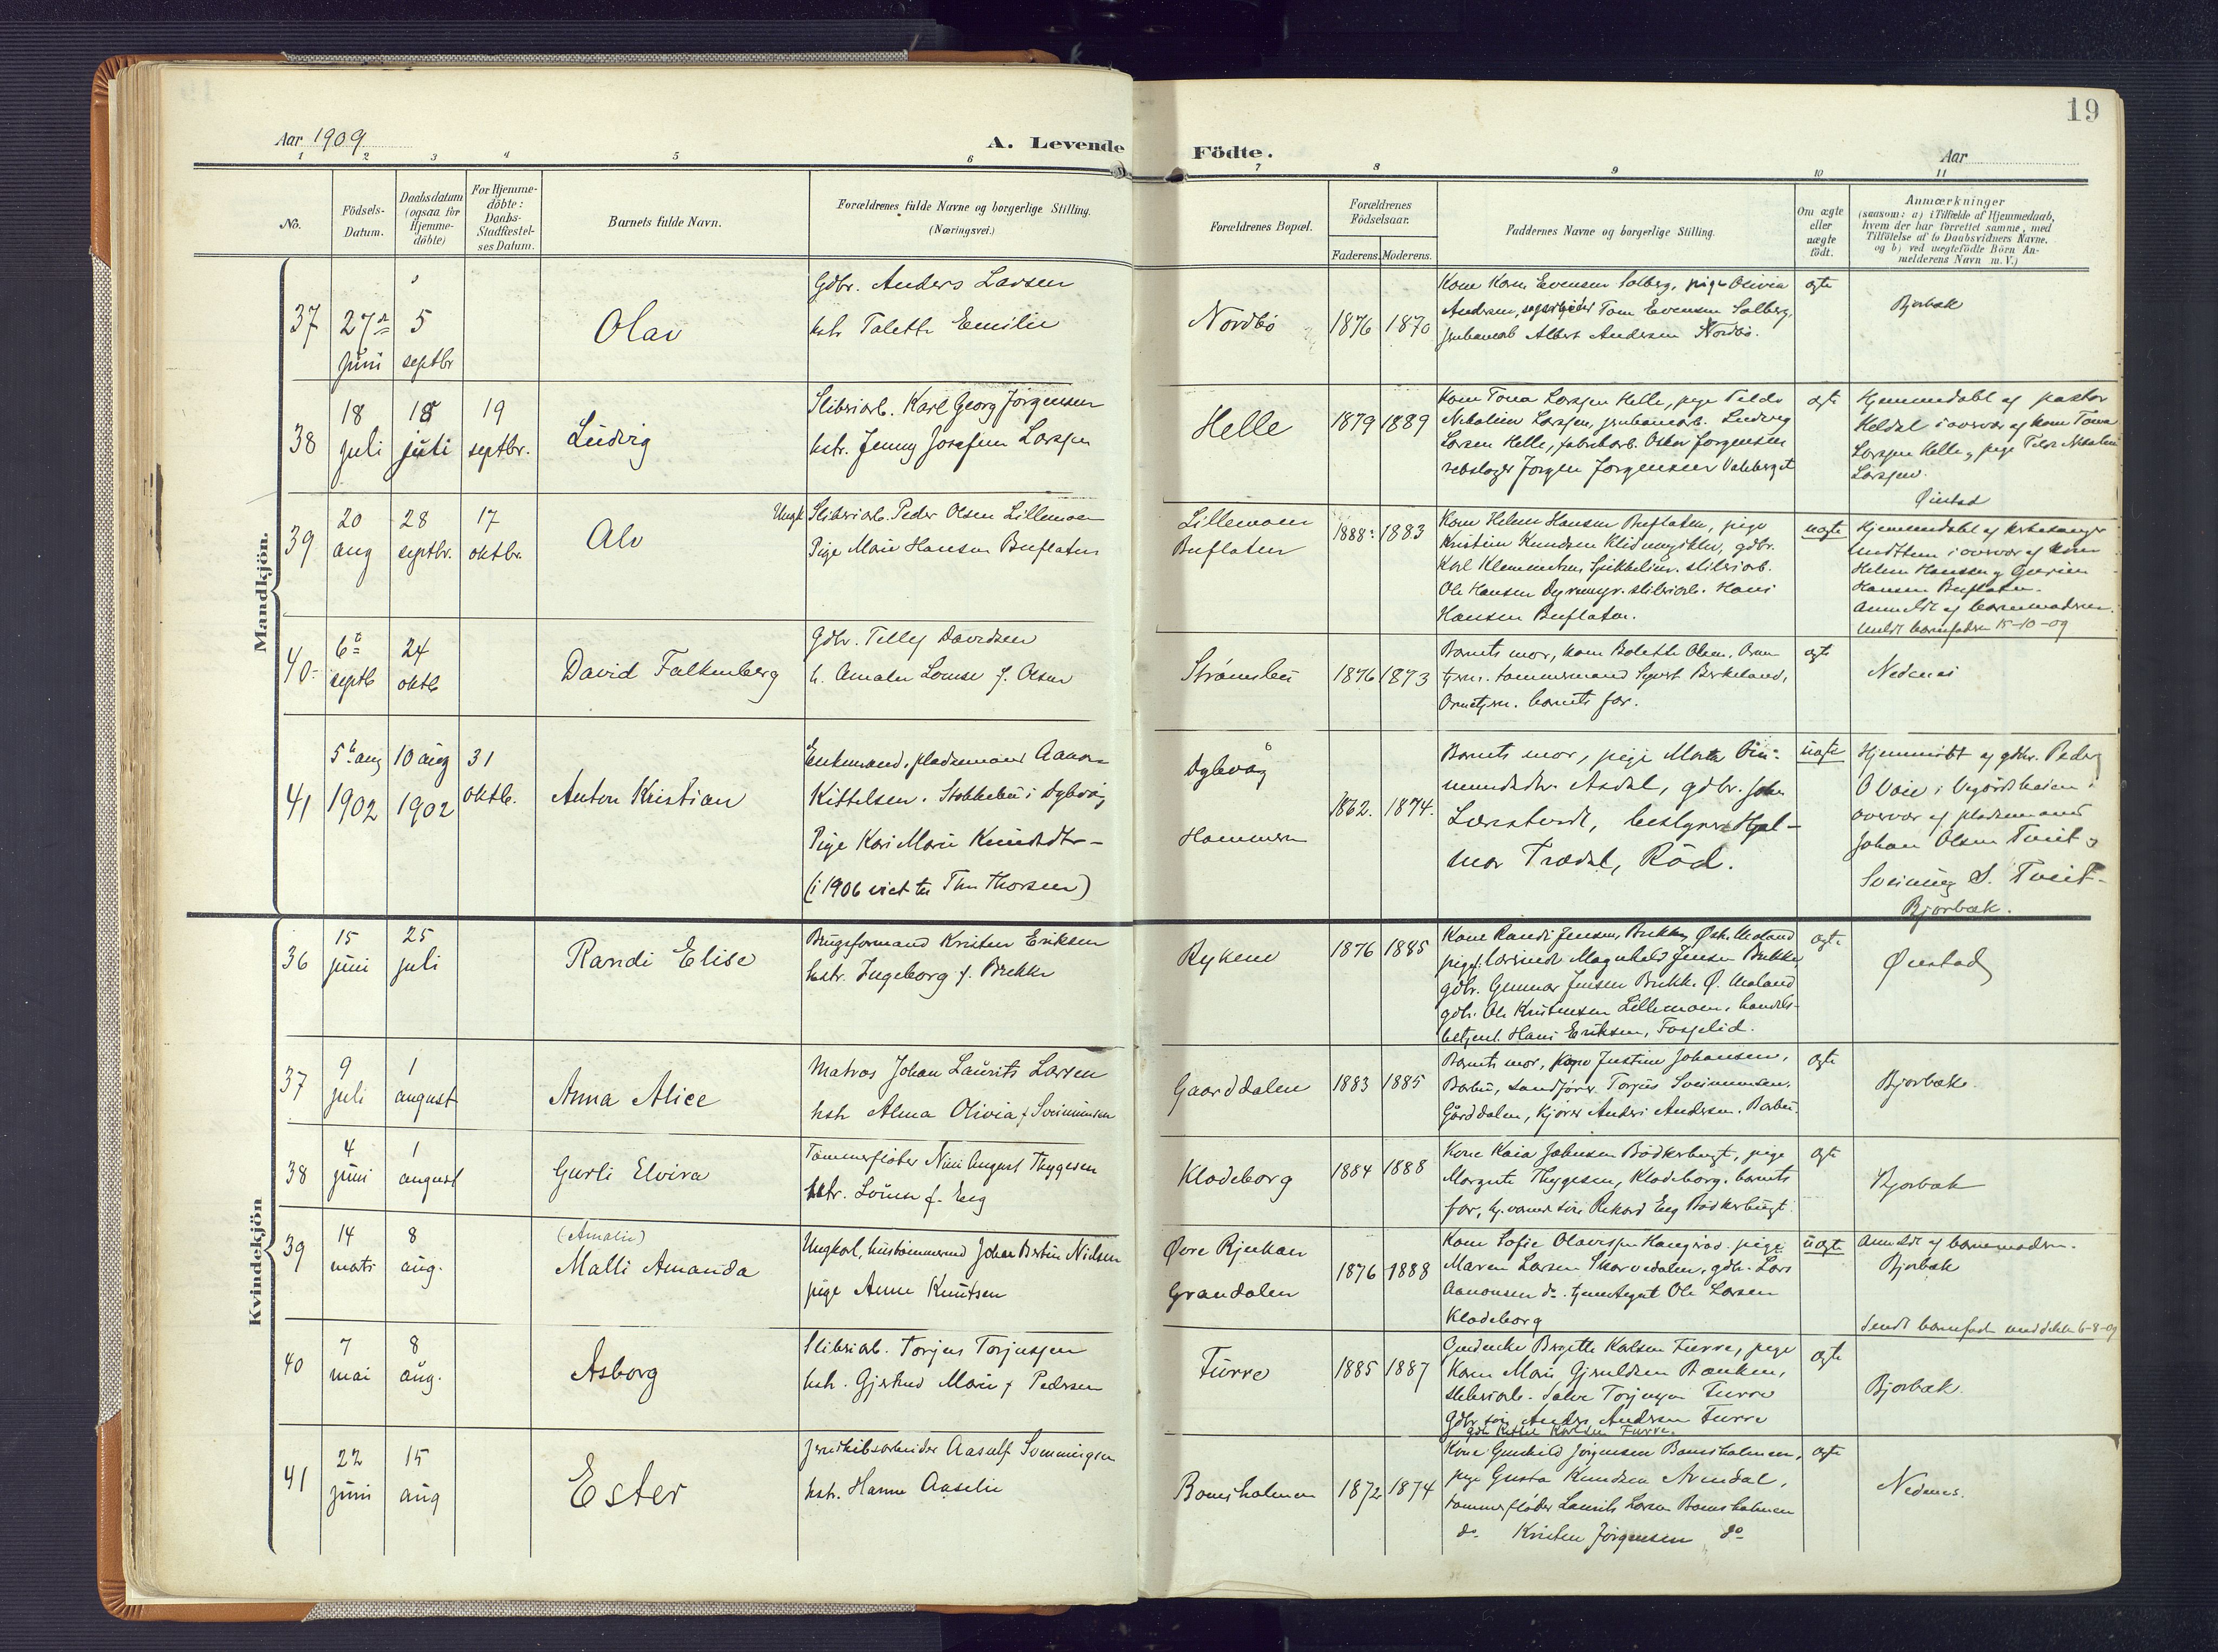 19
Aar 1909
A. Levende
Födte.
Aar
1 2 3 4 5 6 7 8 9 10 11
No.
Födsels-
Datum.
Daabsdatum
(ogsaa for
Hjemme-
döbte)
For Hjemme-
döbte:
Daabs-
Stadfæstel-
ses Datum.
Barnets fulde Navn.
Forældrenes fulde Navne og borgerlige Stilling.
(Næringsvei.)
Forældrenes Bopæl.
Forældrenes
Födselsaar.
Faderens. Moderens.
Faddernes Navne og borgerlige Stilling.
Om ægte
eller
uægte
födt.
Anmærkninger
(saasom: a) i Tilfælde af Hjemmedaab,
hvem der har forrettet samme, med
Tilföielse af to Daabsvidners Navne.
og b) ved uægtefödte Börn An-
melderens Navn m. V.)
Mandkjön.
37
27de
juni
5
septbr
Olav
Gdbr. Anders Larsen
hstr Talette Emilie
Nordbö
1876 1870
Kone Karen Evensen Solberg, pige Olivia
Andersen, Tom Evensen Solberg,
Albert Andersen Nordbö.
ægte
Bjorbæk
38
18
juli
18
juli
19
septbr.
Ludvig
Sliberiarb. Karl Georg Jörgensen
hstr. Jenny Josefine Larsen
Helle
1879 1889
Kone Tona Larsen Helle, pige Tilda
Nikoline Larsen, Ludvig
Larsen Helle, fabrikarb. Oskar Jorgensen
rebslager Jorgen Jorgensen
ægte
Hjemmedøbt af pastor
Heldal i overvær af kone Tona
Larsen Helle og pige Tilda Nikoline
Larsen.
Öiestad
39
20
aug
28
septbr.
17
oktbr.
Alv
Ungk. Sliberiarb. Peder Olsen Lillemoen
Pige Marie Hansen Buflaten
Lillemoen
Buflaten
1888 1883
Kone Helene Hansen Buflaten, pige
Kristine Knudsen gdbr.
Karl Klemmetsen sliberiarb.
Ole Hansen Dyremyr. sliberiarb. Hans
Hansen Buflaten.
uægte
Hjemmedøbt af
i overvær af kone
Helene Hansen og
Hansen Buflaten.
Anmeldt af barnemoderen.
meldt barnefaderen 15-10-09
40
6te
septb
24
oktb
David Falkenberg
Gdbr. Tellef Davidsen
h. Amalie Louise f. Olsen
Strømsbu
1876 1873
Barnets mor, kone Bolette Olsen,
tømmermand Birkeland,
barnets far.
ægte
Nedenes
41
5te aug
1902
10 aug
1902
31
oktb.
Anton Kristian
Enkemand, pladsemand Aanon
Kittelsen. Stokkebu i Dybvåg
Pige Kari Marie Knudsdtr
(i 1906 viet til Thorsen)
Dybvåg
Hammeren
1862. 1874.
Barnets mor, pige Marta
Aasdal, gdbr. John
bestyrer Hjal-
mar Trædal, Röd.
uægte
Hjemmedøbt af gdbr. Peder
O Voie i Vegårdsheien i
overvær af pladsemand
Johan Olsen Tveit og
Sveinung S. Tveit
Bjorbæk.
Kvindekjön
36
15
juni
25
juli
Randi Elise
Brugsformand Kristen Eriksen
hstr. Ingeborg f. Brekke
Rykene
1876 1885
Kone Randi Jensen, Brekke,
Magnhild Jensen Brekke,
gdbr. Gunnar Jensen Brekke
gdbr. Ole Kristensen Lillemoen, handels-
betjent Hans Eriksen, Fosselid.
ægte
Öiestad
37
9
juli
1
august
Anna Alice
Matros Johan Laurits Larsen
hstr Alma Olivia f. Sveinunsen
Gaarddalen
1883 1885
Barnets mor, kone Justine Johansen,
Barbu, sandfører Torjus Sveinunsen,
Gårddalen, kjører Anders Andersen. Barbu.
ægte
Bjorbæk.
38
4
juni
1
august
Gurli Elvira
Tømmerfløder Nini August Thygesen
hstr. Louise f. Eeg
Klodeborg
1884 1888
Kone Kaia Jakobsen Bödkerbugt, pige
Margrete Thygesen, Klodeborg, barnets
far, Rikard Eeg Bödkerbugt.
ægte
Bjorbæk
39
14
mars
8
aug.
(Amalie)
Malli Amanda
Ungkarl, hustömmermd Johan Bertin Nielsen
pige Anne Knutsen
Övre Rjukan
Grandalen
1876 1888
Kone Sofie
Maren Larsen Skarvedalen, gdbr. Lars
Aanonsen do. Ole Larsen
Klodeborg
uægte
Anmeldt af barnemoderen.
Bjorbæk
Sendt barnefad. meddelelse 6-8-09
40
7
mai
8
aug.
Asborg
Sliberiarb. Torjus Torjussen
hstr. Gjertrud Marie f. Pedersen
Furre
1885 1887
Birgitte Karlsen Furre, pige
Karen Marie
sliberiarb. Salve Torjussen Furre
Gdbr. søn Anders Andersen Furre
gdbr Kittel Karlsen Furre.
ægte
Bjorbæk.
41
22
juni
15
aug
Ester
Jernskibsarbeider Aasulf Sommingsen
hstr. Hanne Aaselie
Bomsholmen
1872 1874
Kone Gunhild Jörgensen Bomsholmen,
pige Gusta Knudsen Arendal,
tömmerfløder Laurits Larsen Bomsholmen
do. Kristen Jörgensen do
ægte
Nedenes.